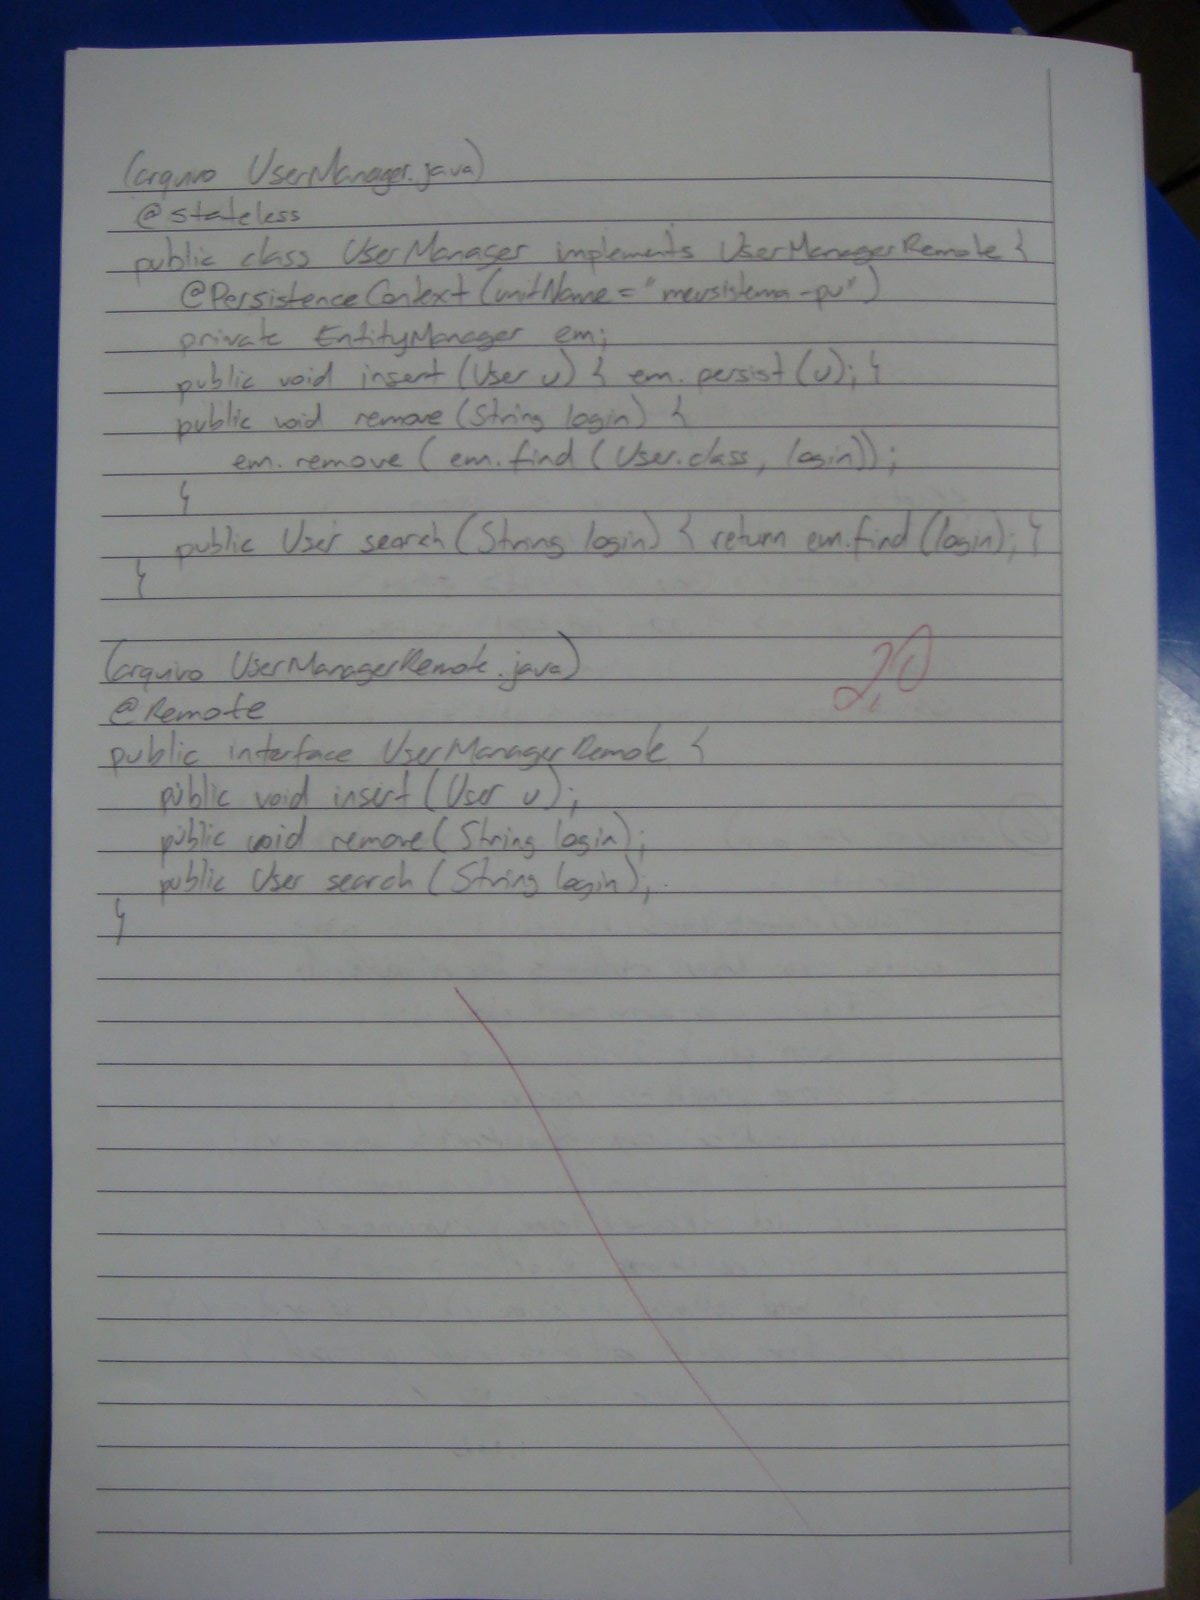 (arquivo UserManager.java)
@stateless
public class UserManager implements UserManagerRemote {
@PersistenceContext (unitName = "meusistema-pu")
private EntityManager em;
public void insert (User u) { em.persist (u); }
public void remove (String login) {
em.remove ( em.find (User.class, login));
}
public User search (String login) { return em.find (login); }
}
(arquivo UserManagerRemote.java)
2,0
@Remote
public interface UserManagerRemote {
public void insert (User u);
public void remove (String login);
public User search (String login);
}